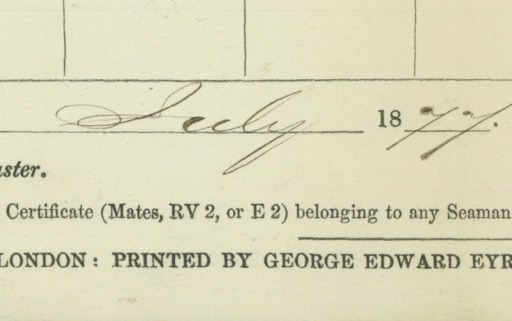 July 1877.
aster.
Certificate (Mates, RV 2, or E 2) belonging to any Seaman
LONDON: PRINTED BY GEORGE EDWARD EYR